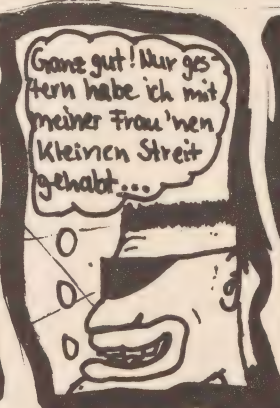 Ganz gut! Nur ges-
tern habe ich mit
meiner Frau 'nen
kleinen Streit
gehabt...